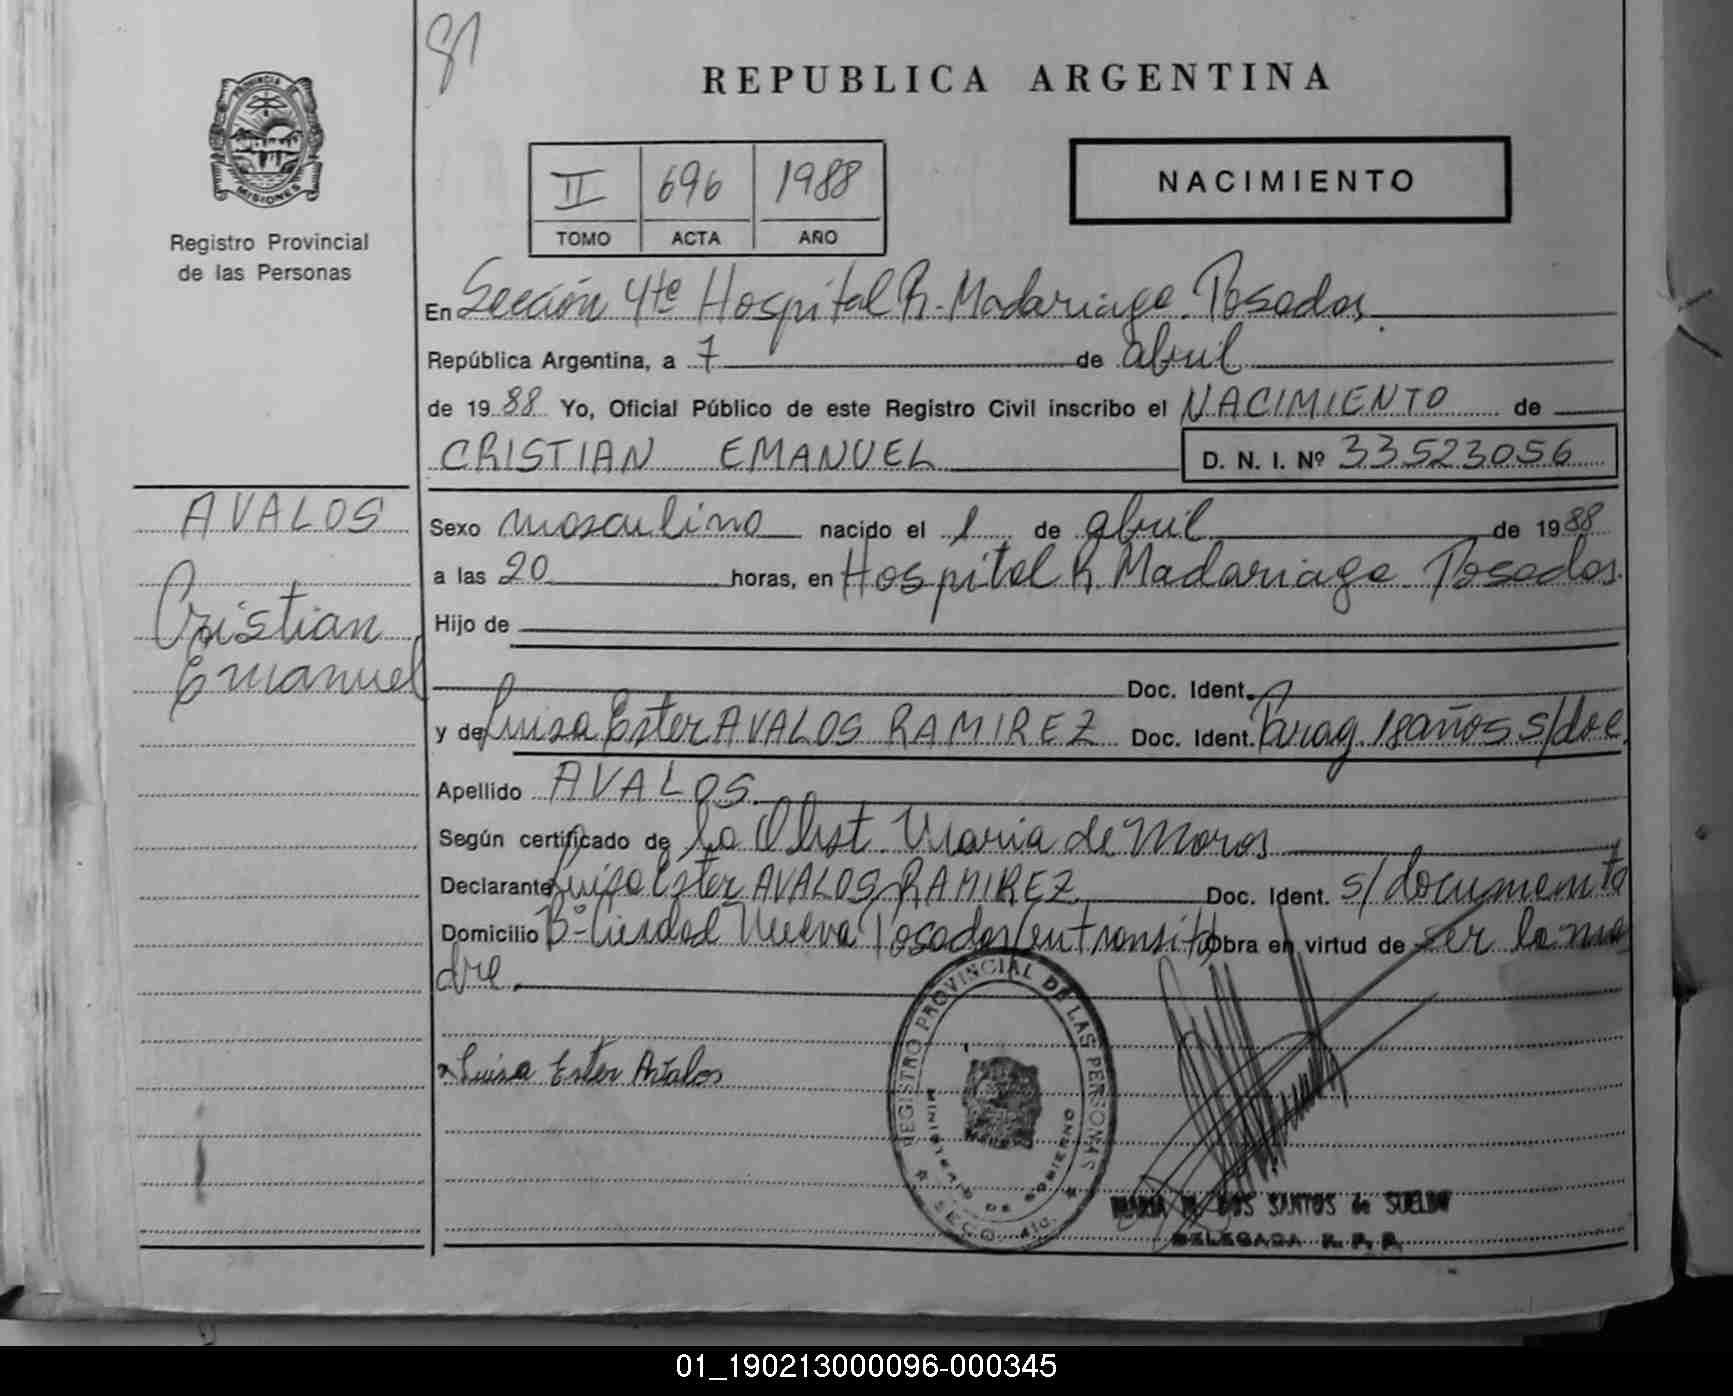 81
REPUBLICA ARGENTINA
PROVINCIA DE
MISIONES
Registro Provincial
de las Personas
II 696 1988
TOMO ACTA AÑO
NACIMIENTO
En Sección 4ta Hospital R. Madariaga. Posadas.
República Argentina, a 7 de abril
de 1988 Yo, Oficial Público de este Registro Civil inscribo el NACIMIENTO de
CRISTIAN EMANUEL D. N. I. Nº 33523056
AVALOS
Cristian
Emanuel
Sexo masculino nacido el 1 de abril de 1988
a las 20 horas, en Hospital R. Madariaga Posadas.
Hijo de
Doc. Ident.
y de Luisa Ester AVALOS RAMIREZ Doc. Ident. Parag. 18 años s/doc.
Apellido AVALOS
Según certificado de la Obst. Maria de Moros
Declarante Luisa Ester AVALOS RAMIREZ Doc. Ident. s/documento
Domicilio Bº Ciudad Nueva Posadas (en transito) Obra en virtud de ser la ma
dre.
Luisa Ester Avalos
REGISTRO PROVINCIAL DE LAS PERSONAS
MINISTERIO DE GOBIERNO
SECC. 4ta.
MARIA DOS SANTOS de
DELEGADA R. P. P.
01_190213000096-000345